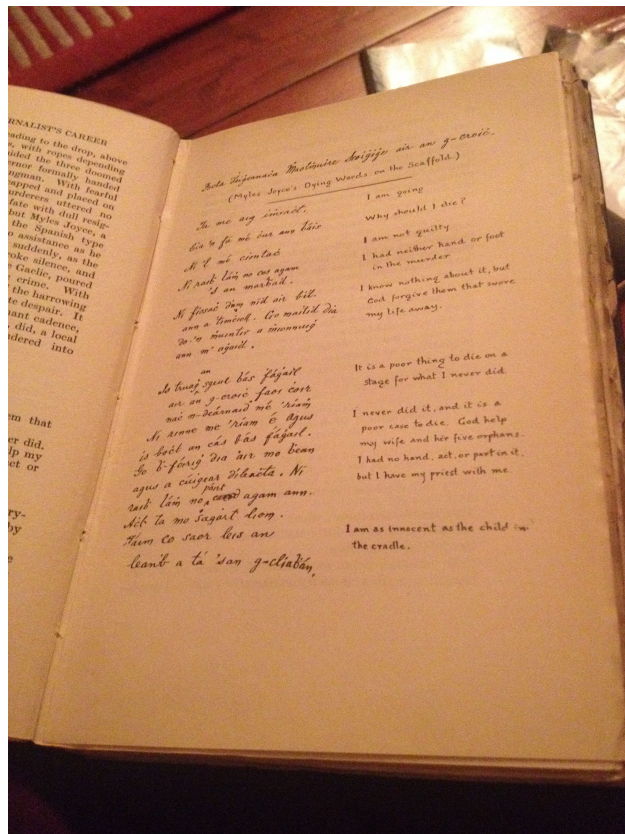 RNALIST'S CAREER
eading to the drop, above
e, with ropes depending
uided the three doomed
ernor formally handed
ngman. With fearful
capped and placed on
urderers uttered no
fate with dull resig-
but Myles Joyce, a
the Spanish type
o assistance as he
suddenly, as the
oke silence, and
e Gaelic, poured
crime. With
the harrowing
te despair. It
nant cadence,
did, a local
ndered into
em that
er did,
lp my
ct or
ry-
by
e
air an g-croiċ.
(Myles Joyce's Dying Words on the Scaffold.)
mé
mé ciontaċ
Ni raiḃ láiṁ no cos agam
's an
air biṫ.
ann a Go dia
ann m'
an
As truaġ bás fáġail
air an g-croiċ faoi
naċ n-dearnaiḋ mé 'riaṁ
Ni rinne mé 'riaṁ é agus
is boċt an cás bás fáġail.
Go dia air mo ḃean
agus a cúigear dileaċta. Ni
páirt
raiḃ láiṁ no agam ann.
Aċt ta mo ṡagart liom.
Táim co saor leis an
leanḃ a tá 'san g-cliaḃán.
I am going
Why should I die?
I am not guilty
I had neither hand or foot
in the murder
I know nothing about it, but
God forgive them that swore
my life away.
It is a poor thing to die on a
stage for what I never did.
I never did it, and it is a
poor case to die. God help
my wife and her five orphans.
I had no hand, act, or part in it,
but I have my priest with me.
I am as innocent as the child in
the cradle.